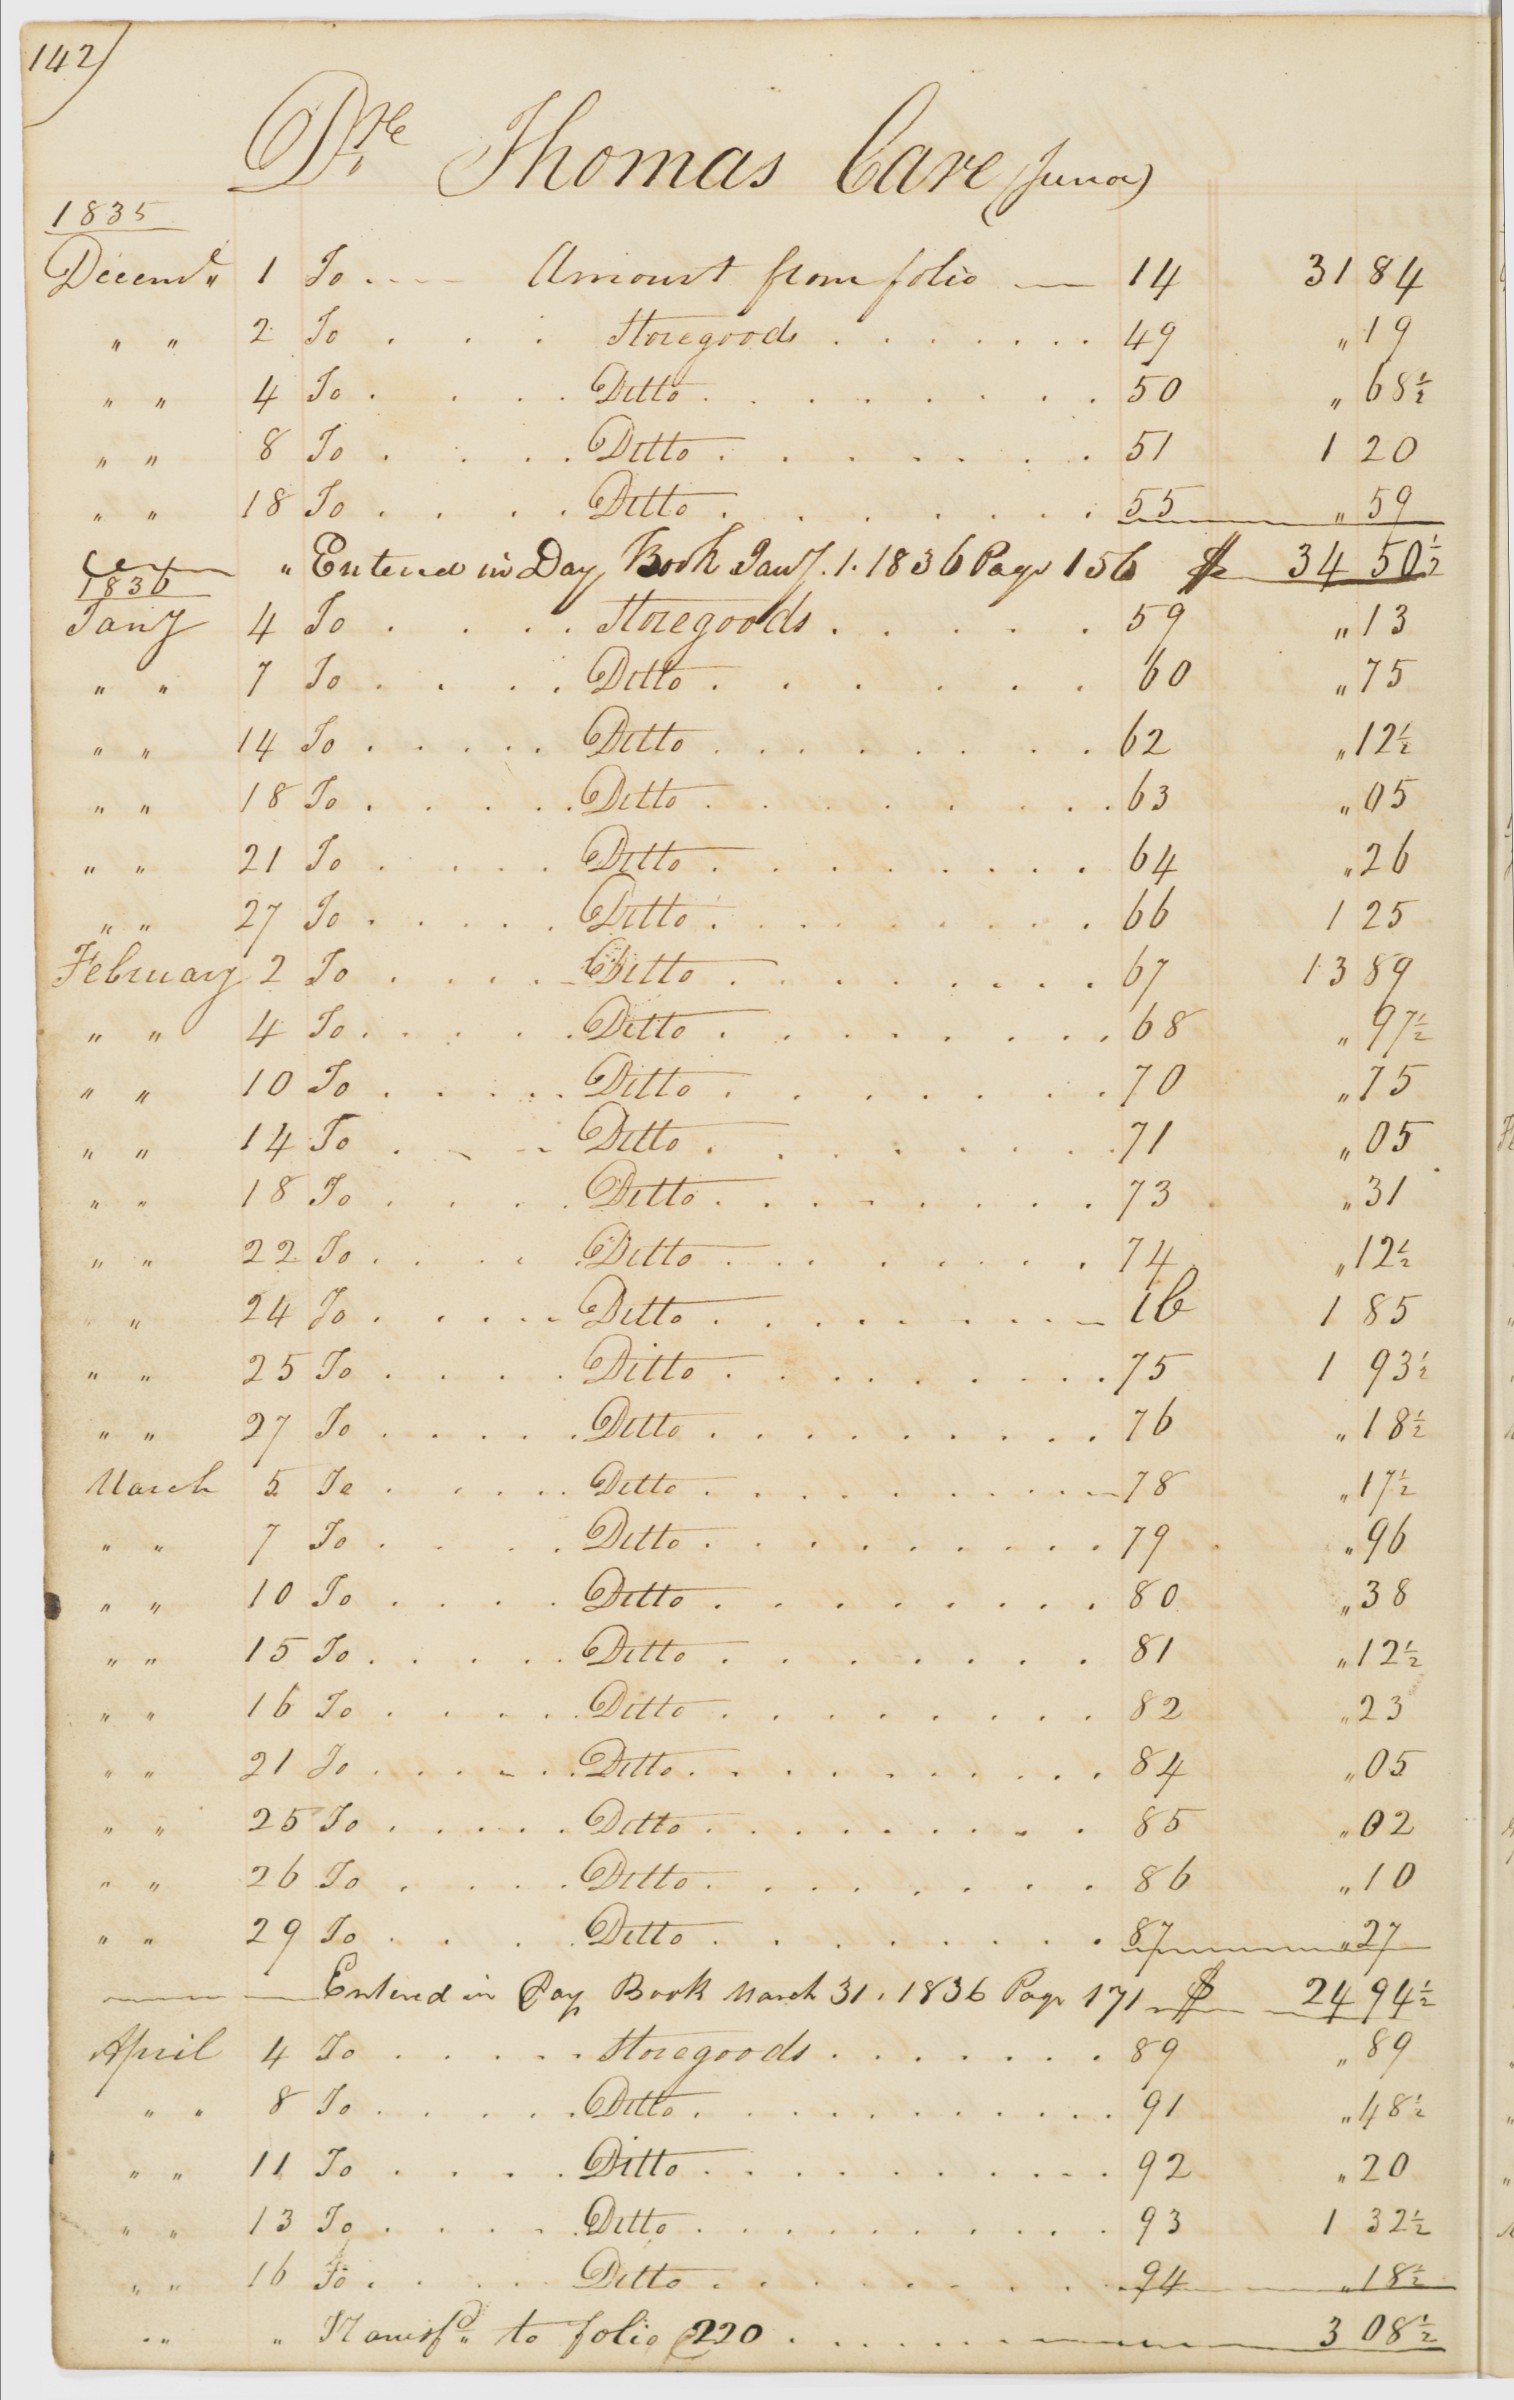 142
Dr. Thomas Care (Junor)
1835
Decemr 1 To Amount from folio 14 31 84
" " 2 To Storegoods 49 " 19
" " 4 To Ditto 50 " 68½
" " 8 To Ditto 51 1 20
" " 18 To Ditto 55 " 59
" Entered in Day Book Jany. 1. 1836 Page 156 $ 34 50½
1836
Jany 4 To Storegoods 59 " 13
" " 7 To Ditto 60 " 75
" " 14 To Ditto 62 " 12½
" " 18 To Ditto 63 " 05
" " 21 To Ditto 64 " 26
" " 27 To Ditto 66 1 25
February 2 To Ditto 67 13 89
" " 4 To Ditto 68 " 97½
" " 10 To Ditto 70 " 75
" " 14 To Ditto 71 " 05
" " 18 To Ditto 73 " 31
" " 22 To Ditto 74 " 12½
" " 24 To Ditto ib 1 85
" " 25 To Ditto 75 1 93½
" " 27 To Ditto 76 " 18½
March 5 To Ditto 78 " 17½
" " 7 To Ditto 79 " 96
" " 10 To Ditto 80 " 38
" " 15 To Ditto 81 " 12½
" " 16 To Ditto 82 " 23
" " 21 To Ditto 84 " 05
" " 25 To Ditto 85 " 02
" " 26 To Ditto 86 " 10
" " 29 To Ditto 87 " 27
Entered in Day Book March 31. 1836 Page 171 $ 24 94½
April 4 To Storegoods 89 " 89
" " 8 To Ditto 91 " 48½
" " 11 To Ditto 92 " 20
" " 13 To Ditto 93 1 32½
" " 16 To Ditto 94 " 18½
" " " Transfd to folio 220 3 08½